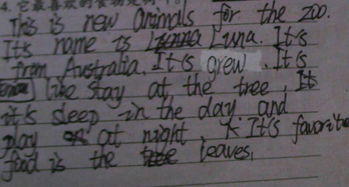 4. 它最喜欢的食物是树叶
This is new animals for the zoo.
It's name is Luna. It's
from Australia. It's grew. It's
like stay at the tree, It
it's sleep in the day and
play at night. It's favorite
food is the leaves.